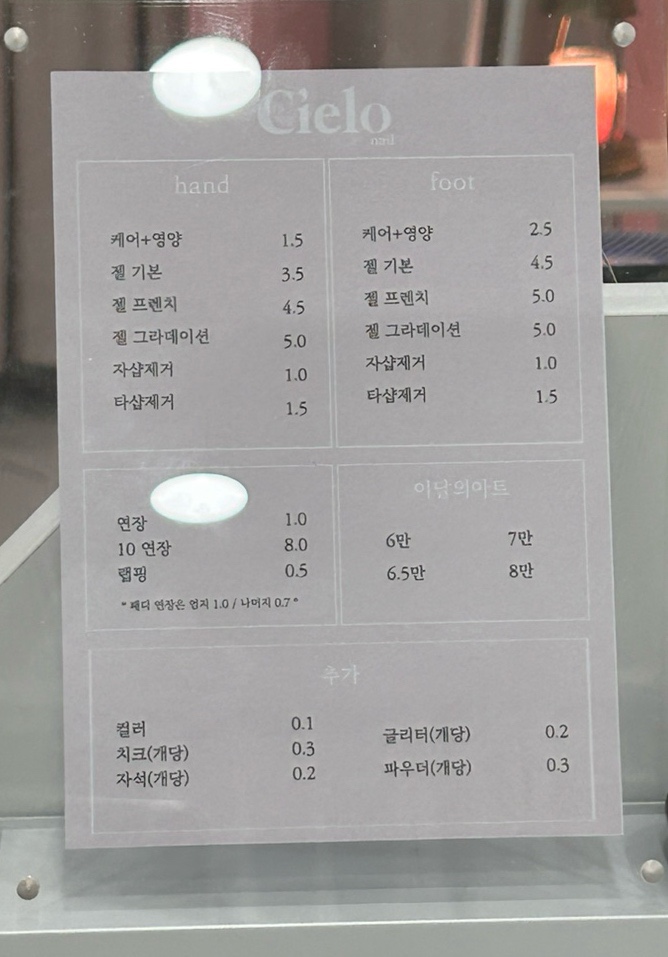 Cielo
nail
hand
케어+영양 1.5
젤 기본 3.5
젤 프렌치 4.5
젤 그라데이션 5.0
자샵제거 1.0
타샵제거 1.5
foot
케어+영양 2.5
젤 기본 4.5
젤 프렌치 5.0
젤 그라데이션 5.0
자샵제거 1.0
타샵제거 1.5
연장 1.0
10 연장 8.0
랩핑 0.5
* 패디 연장은 엄지 1.0 / 나머지 0.7 *
이달의아트
6만 7만
6.5만 8만
추가
컬러 0.1
치크(개당) 0.3
자석(개당) 0.2
글리터(개당) 0.2
파우더(개당) 0.3